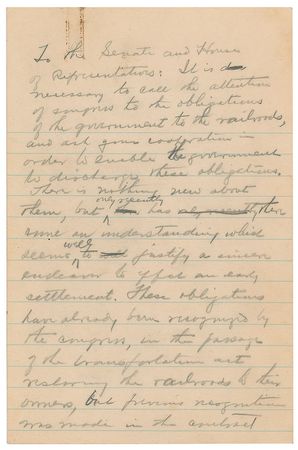 To the Senate and House
of Representatives: It is
necessary to call the attention
of congress to the obligations
of the government to the railroads,
and ask your cooperation in
order to enable the government
to discharge these obligations.
There is nothing new about
only recently
them, but has there
come an understanding which
well
seems to justify a sincere
endeavor to effect an early
settlement. These obligations
have already been recognized by
the congress, in the passage
of the transportation act
restoring the railroads to their
owners, but previous recognition
was made in the contract